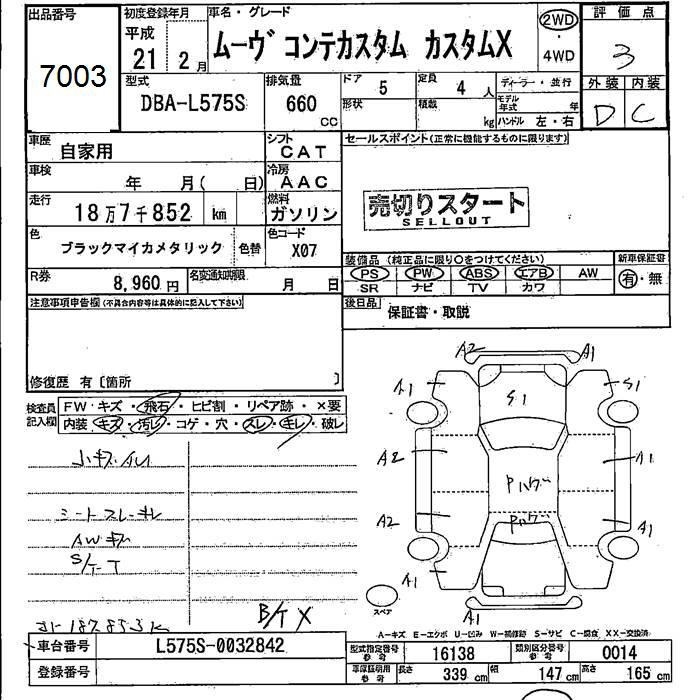 出品番号 初度登録年月 車名・グレード 2WD 評価点
7003 平成 21 2月 ムーヴ コンテカスタム カスタムX 4WD 3
型式 排気量 ドア 定員 ディーラー・並行 外装 内装
DBA-L575S 660 CC 5 4人 D C
形状 積載 kg モデル年式 年 ハンドル 左・右
車歴 シフト セールスポイント(正常に機能するものに限ります)
自家用 CAT
車検 年 月( 日) 冷房 AAC
走行 燃料 売切りスタート
18万7千852 km ガソリン SELLOUT
色 色替 色コード
ブラックマイカメタリック X07
装備品 (純正品に限り○をつけてください) 新車保証書
R券 8,960円 名変通知期限 月 日 PS PW ABS エアB AW 有・無
SR ナビ TV カワ
注意事項申告欄(不具合内容等は具体的に記入して下さい) 後日品 保証書・取説
修復歴 有〔箇所 〕
検査員 FW・キズ・飛石・ヒビ割・リペア跡・×要
記入欄 内装・キズ・汚レ・コゲ・穴・スレ・キレ・破レ
A2 A1
A1 S1 S1
小キズ AU
A2 A1
Pハゲ
シートスレ キレ
A2 Pハゲ A1
AWキズ
S/T-T
A1 スペア
B/T X A1
187853K
A-キズ E-エクボ U-凹み W-補修跡 S-サビ C-腐食 XX-交換済
車台番号 L575S-0032842 型式指定番号参考 16138 類別区分番号参考 0014
登録番号 車庫証明用参考 長さ 339 cm 幅 147 cm 高さ 165 cm